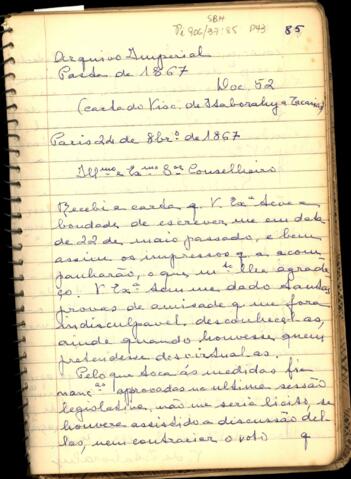 SBH
Pi 906/37:85 P43 85
Arquivo Imperial
Pasta de 1867
Doc. 52
(carta do Visc. de Itaborahy a Zacarias)
Paris 24 de 8brº de 1867
Illmo e Exmo Snr Conselheiro
Recebi a carta q. V. Exª teve a
bondade de escrever-me em data
de 22 de maio passado, e bem
assim os impressos q a acom
panharão, o que mto lhe agrade
ço. V. Exª tem me dado tantas
provas de amisade q me fora
indisculpavel desconhecel-as,
ainda quando houvesse quem
pretendesse desvirtual-as.
Pelo que toca ás medidas fi
nanças approvadas na ultima sessão
legislativa, não me seria licito, se
houvera assistido a discussão del
las, nem contrariar o voto q